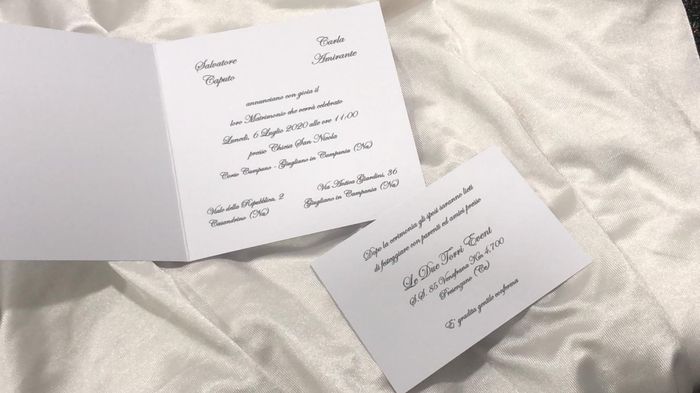 Salvatore
Caputo
Carla
Amirante
annunciano con gioia il
loro Matrimonio che verrà celebrato
Lunedì, 6 Luglio 2020 alle ore 11:00
presso Chiesa San Nicola
Corso Campano - Giugliano in Campania (Na)
Viale della Repubblica, 2
Casandrino (Na)
Via Antica Giardini, 36
Giugliano in Campania (Na)
Dopo la cerimonia gli sposi saranno lieti
di festeggiare con parenti ed amici presso
Le Due Torri Event
S.S. 85 Venafrana Km 4,700
Presenzano (Ce)
E' gradita gentile conferma